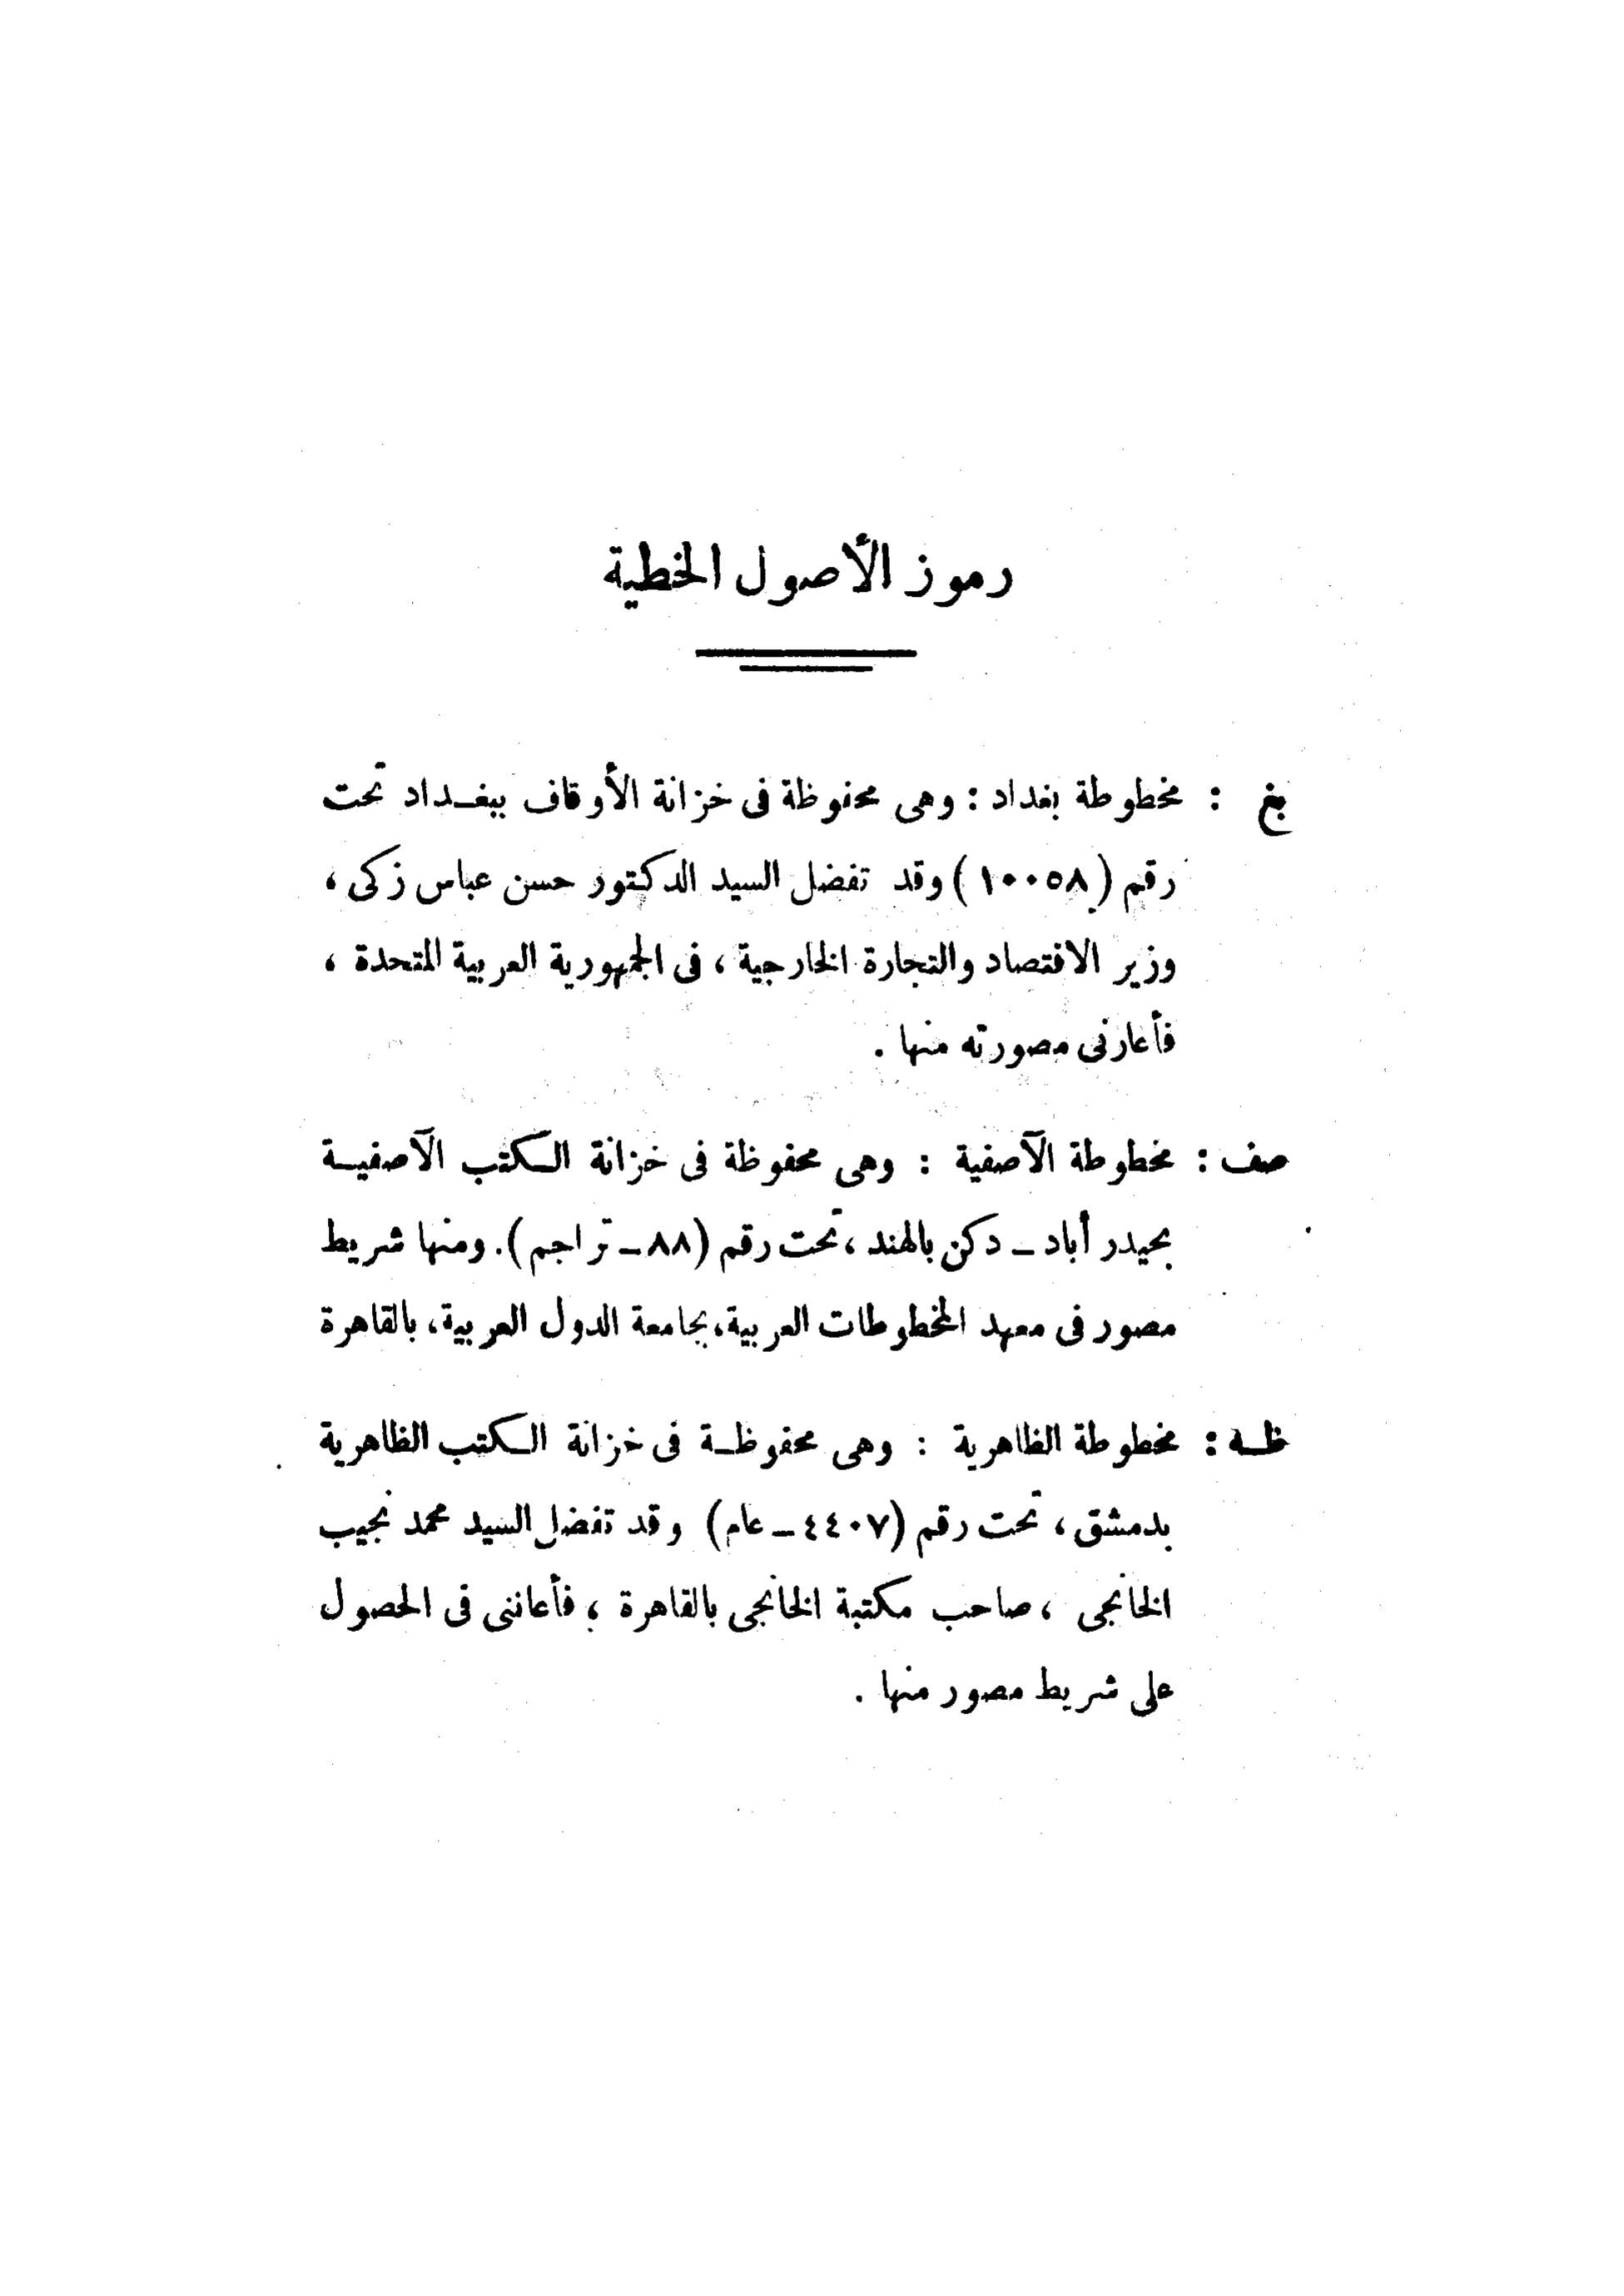 رموز الأصول الخطية
بغ : مخطوطة بغداد : وهى محفوظة فى خزانة الأوقاف ببغداد تحت
رقم ( ١٠٠٥٨ ) وقد تفضل السيد الدكتور حسن عباس زكى ،
وزير الاقتصاد والتجارة الخارجية ، فى الجمهورية العربية المتحدة ،
فأعارنى مصورته منها .
صف : مخطوطة الآصفية : وهى محفوظة فى خزانة الكتب الآصفية
بحيدر أباد – دكن بالهند ، تحت رقم (٨٨ – تراجم). ومنها شريط
مصور فى معهد المخطوطات العربية، بجامعة الدول العربية، بالقاهرة
ظه : مخطوطة الظاهرية : وهى محفوظة فى خزانة الكتب الظاهرية
بدمشق ، تحت رقم (٤٤٠٧ – عام) وقد تفضل السيد محمد نجيب
الخانجى ، صاحب مكتبة الخانجى بالقاهرة ، فأعاننى فى الحصول
على شريط مصور منها .